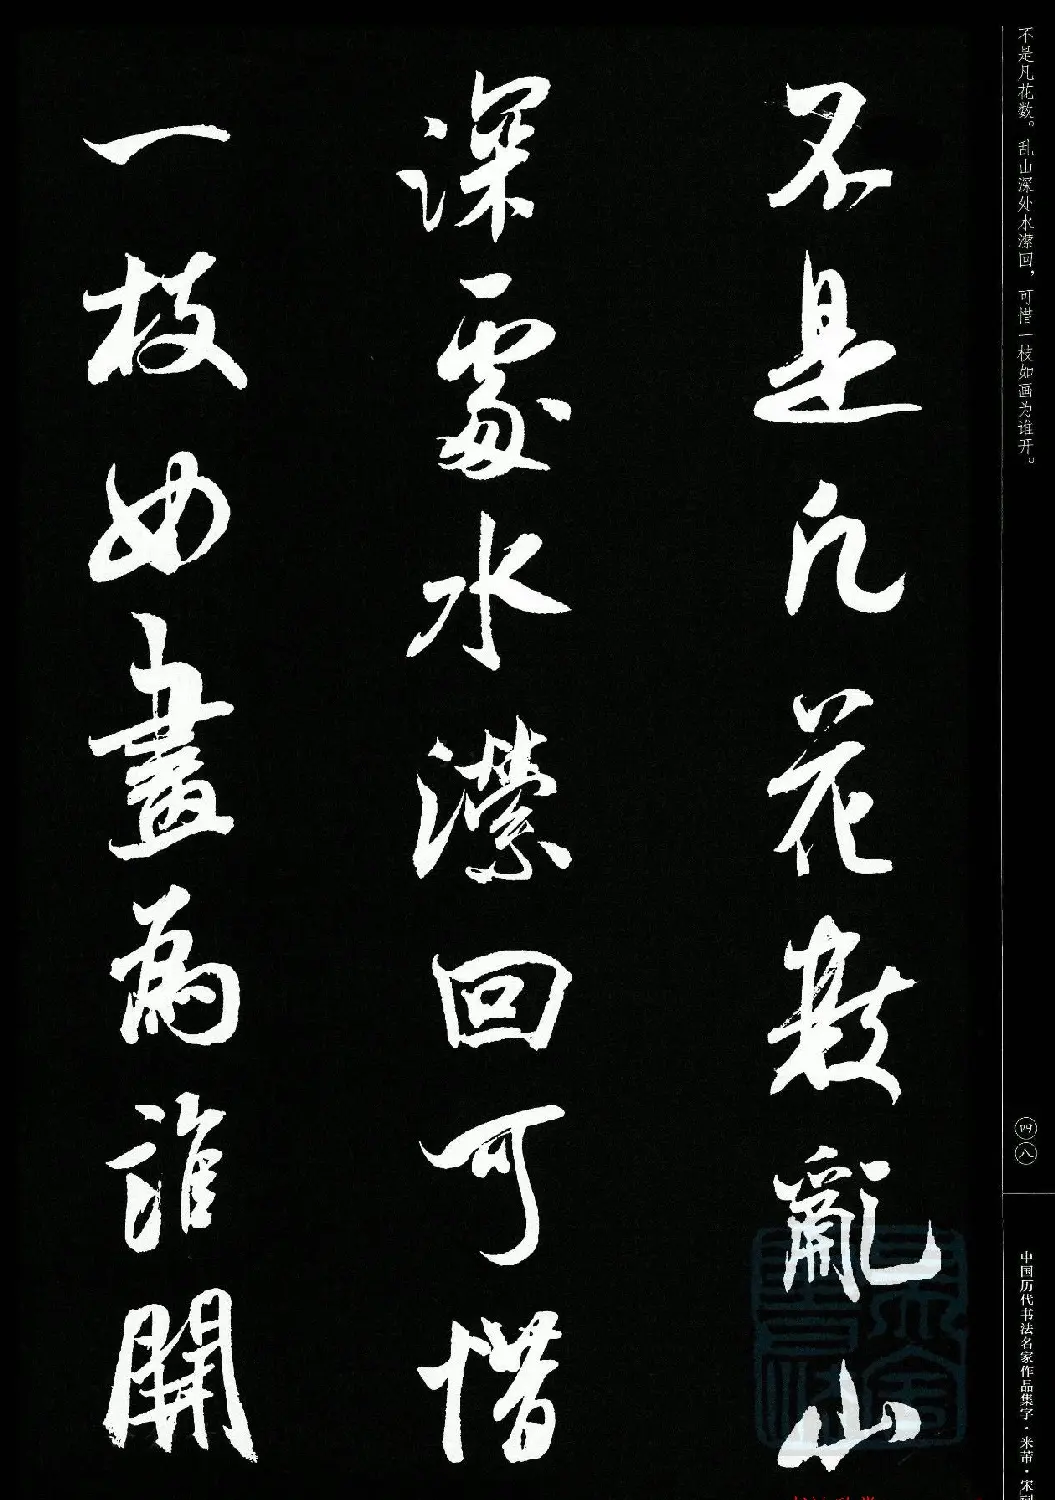 不是凡花数。乱山深处水潆回，可惜一枝如画为谁开。
不是凡花數亂山
深處水瀠回可惜
一枝如畫為誰開
四八
中国历代书法名家作品集字·米芾·宋